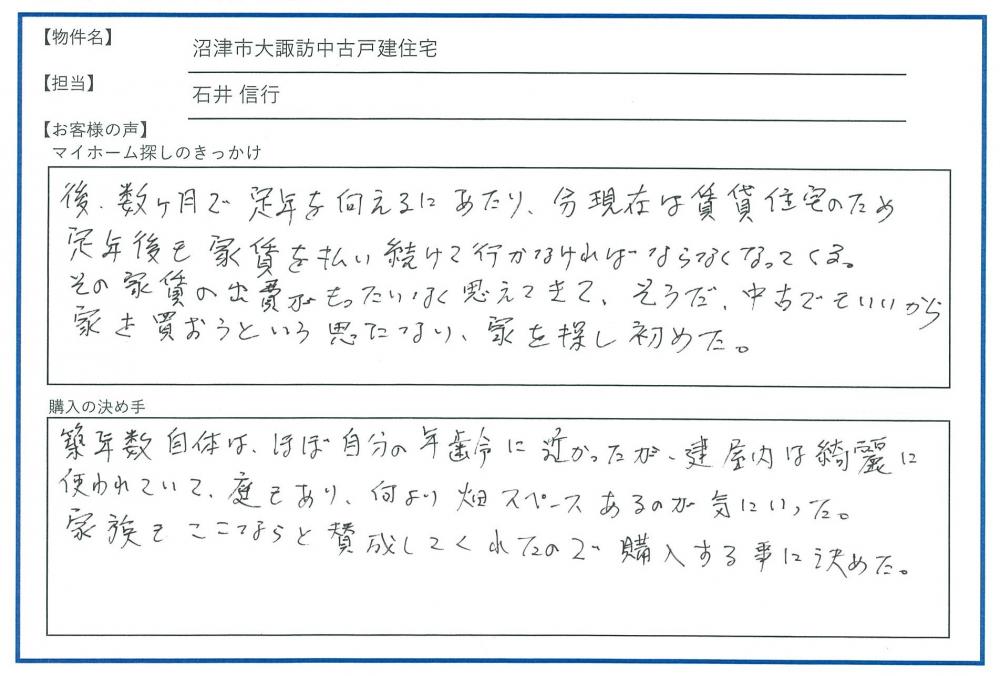 【物件名】
沼津市大諏訪中古戸建住宅
【担当】
石井 信行
【お客様の声】
マイホーム探しのきっかけ
後、数ヶ月で定年を向えるにあたり、今現在は賃貸住宅のため
定年後も家賃を払い続けて行かなければならなくなってくる。
その家賃の出費がもったいなく思えてきて、そうだ、中古でもいいから
家を買おうという思になり、家を探し初めた。
購入の決め手
築年数自体は、ほぼ自分の年齢に近かったが、建屋内は綺麗に
使われていて、庭もあり、何より畑スペースあるのが気にいった。
家族もここならと賛成してくれたので購入する事に決めた。